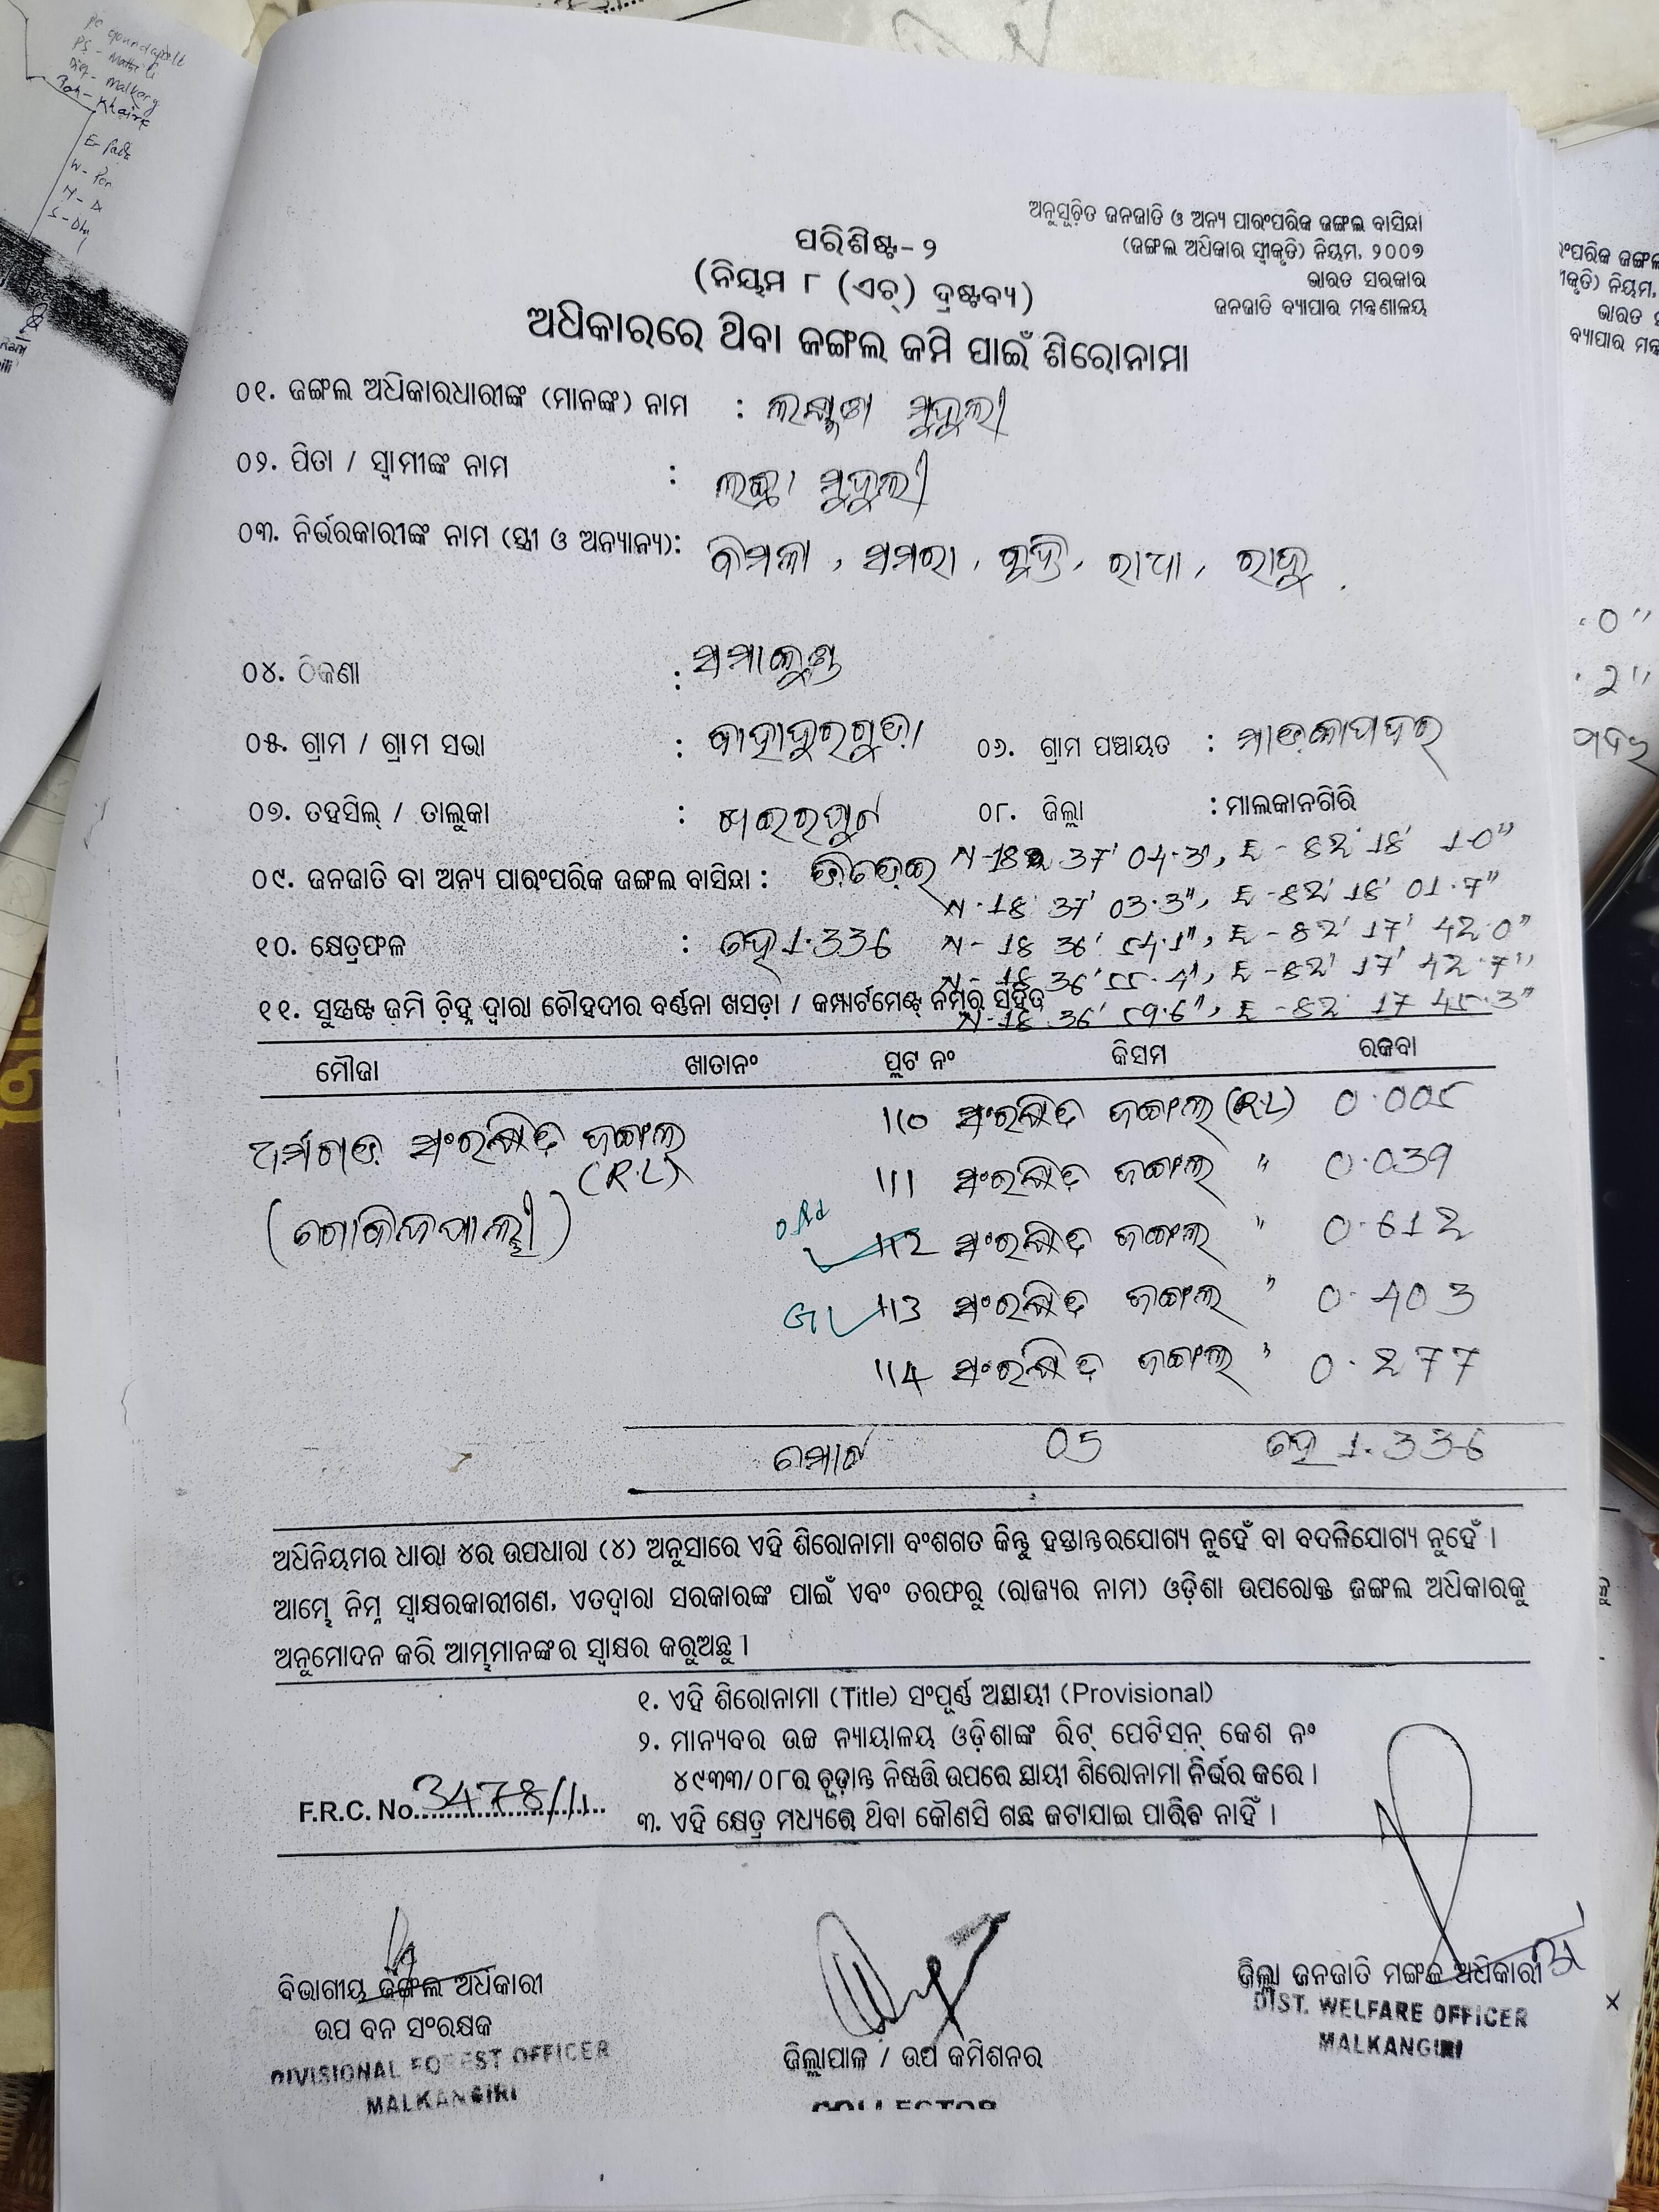 ଅନୁସୂଚିତ ଜନଜାତି ଓ ଅନ୍ୟ ପାରଂପରିକ ଜଙ୍ଗଲ ବାସିନ୍ଦା
(ଜଙ୍ଗଲ ଅଧିକାର ସ୍ୱୀକୃତି) ନିୟମ, ୨୦୦୭
ଭାରତ ସରକାର
ଜନଜାତି ବ୍ୟାପାର ମନ୍ତ୍ରଣାଳୟ
ପରିଶିଷ୍ଟ-୨
(ନିୟମ ୮ (ଏଚ୍) ଦ୍ରଷ୍ଟବ୍ୟ)
ଅଧିକାରରେ ଥିବା ଜଙ୍ଗଲ ଜମି ପାଇଁ ଶିରୋନାମା
୦୧. ଜଙ୍ଗଲ ଅଧିକାରଧାରୀଙ୍କ (ମାନଙ୍କ) ନାମ : ଲକ୍ଷ୍ମଣ ମୁଦୁଲୀ
୦୨. ପିତା / ସ୍ୱାମୀଙ୍କ ନାମ : ମୁଦୁଲୀ
୦୩. ନିର୍ଭରକାରୀଙ୍କ ନାମ (ସ୍ତ୍ରୀ ଓ ଅନ୍ୟାନ୍ୟ): ବିମଳା, ସମରା, ରାଧା, ରାଜୁ
୦୪. ଠିକଣା :
୦୫. ଗ୍ରାମ / ଗ୍ରାମ ସଭା : ବାହାଦୁରଗୁଡ଼ା ୦୬. ଗ୍ରାମ ପଞ୍ଚାୟତ : ମାଡ଼କାପଦର
୦୭. ତହସିଲ୍ / ତାଲୁକା : ଖଇରପୁଟ ୦୮. ଜିଲ୍ଲା : ମାଲକାନଗିରି
୦୯. ଜନଜାତି ବା ଅନ୍ୟ ପାରଂପରିକ ଜଙ୍ଗଲ ବାସିନ୍ଦା : N-18 37' 04.3", E-82' 18' 1.0"
N-18 37' 03.3", E-82' 18' 01.7"
୧୦. କ୍ଷେତ୍ରଫଳ : ହେ 1.336 N-18 36' 54.1", E-82' 17' 42.0"
N-18 36' 55.4", E-82' 17' 42.7"
୧୧. ସୁସ୍ପଷ୍ଟ ଜମି ଚିହ୍ନ ଦ୍ୱାରା ଚୌହଦୀର ବର୍ଣ୍ଣନା ଖସଡ଼ା / କମ୍ପାର୍ଟମେଣ୍ଟ ନମ୍ବର ସହିତ
N-18 36' 59.6", E-82 17 45.3"
ମୌଜା ଖାତାନଂ ପ୍ଲଟ ନଂ କିସମ ରକବା
ସଂରକ୍ଷିତ ଜଙ୍ଗଲ 110 ସଂରକ୍ଷିତ ଜଙ୍ଗଲ (R.L) 0.005
(R.L) 111 ସଂରକ୍ଷିତ ଜଙ୍ଗଲ " 0.039
(ଗୋବିନ୍ଦପାଲ୍ଲୀ) 112 ସଂରକ୍ଷିତ ଜଙ୍ଗଲ " 0.612
113 ସଂରକ୍ଷିତ ଜଙ୍ଗଲ " 0.403
114 ସଂରକ୍ଷିତ ଜଙ୍ଗଲ " 0.277
ମୋଟ 05 ହେ 1.336
ଅଧିନିୟମର ଧାରା ୪ର ଉପଧାରା (୪) ଅନୁସାରେ ଏହି ଶିରୋନାମା ବଂଶଗତ କିନ୍ତୁ ହସ୍ତାନ୍ତରଯୋଗ୍ୟ ନୁହେଁ ବା ବଦଳିଯୋଗ୍ୟ ନୁହେଁ ।
ଆମ୍ଭେ ନିମ୍ନ ସ୍ୱାକ୍ଷରକାରୀଗଣ, ଏତଦ୍ୱାରା ସରକାରଙ୍କ ପାଇଁ ଏବଂ ତରଫରୁ (ରାଜ୍ୟର ନାମ) ଓଡ଼ିଶା ଉପରୋକ୍ତ ଜଙ୍ଗଲ ଅଧିକାରକୁ
ଅନୁମୋଦନ କରି ଆମ୍ଭମାନଙ୍କର ସ୍ୱାକ୍ଷର କରୁଅଛୁ ।
୧. ଏହି ଶିରୋନାମା (Title) ସଂପୂର୍ଣ୍ଣ ଅସ୍ଥାୟୀ (Provisional)
୨. ମାନ୍ୟବର ଉଚ୍ଚ ନ୍ୟାୟାଳୟ ଓଡ଼ିଶାଙ୍କ ରିଟ୍ ପେଟିସନ୍ କେଶ ନଂ
୪୯୩୩/୦୮ର ଚୂଡ଼ାନ୍ତ ନିଷ୍ପତ୍ତି ଉପରେ ସ୍ଥାୟୀ ଶିରୋନାମା ନିର୍ଭର କରେ ।
F.R.C. No. 3478/11
୩. ଏହି କ୍ଷେତ୍ର ମଧ୍ୟରେ ଥିବା କୌଣସି ଗଛ କଟାଯାଇ ପାରିବ ନାହିଁ ।
ବିଭାଗୀୟ ଜଙ୍ଗଲ ଅଧିକାରୀ
ଉପ ବନ ସଂରକ୍ଷକ
DIVISIONAL FOREST OFFICER
MALKANGIRI
ଜିଲ୍ଲାପାଳ / ଉପ କମିଶନର
COLLECTOR
ଜିଲ୍ଲା ଜନଜାତି ମଙ୍ଗଳ ଅଧିକାରୀ
DIST. WELFARE OFFICER
MALKANGIRI